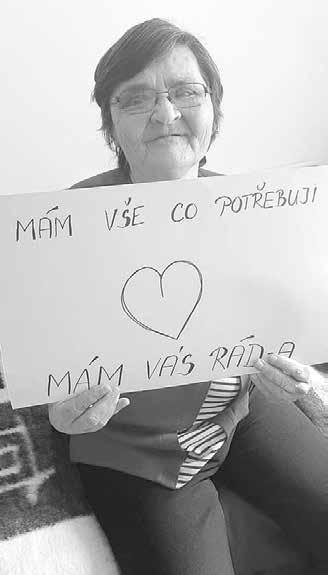 MÁM VŠE CO POTŘEBUJI
MÁM VÁS RÁD-A